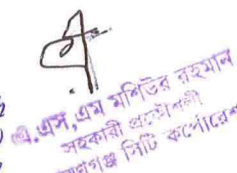 এ.এস,এম মশিউর রহমান
সহকারী প্রকৌশলী
সিটি কর্পোরেশন